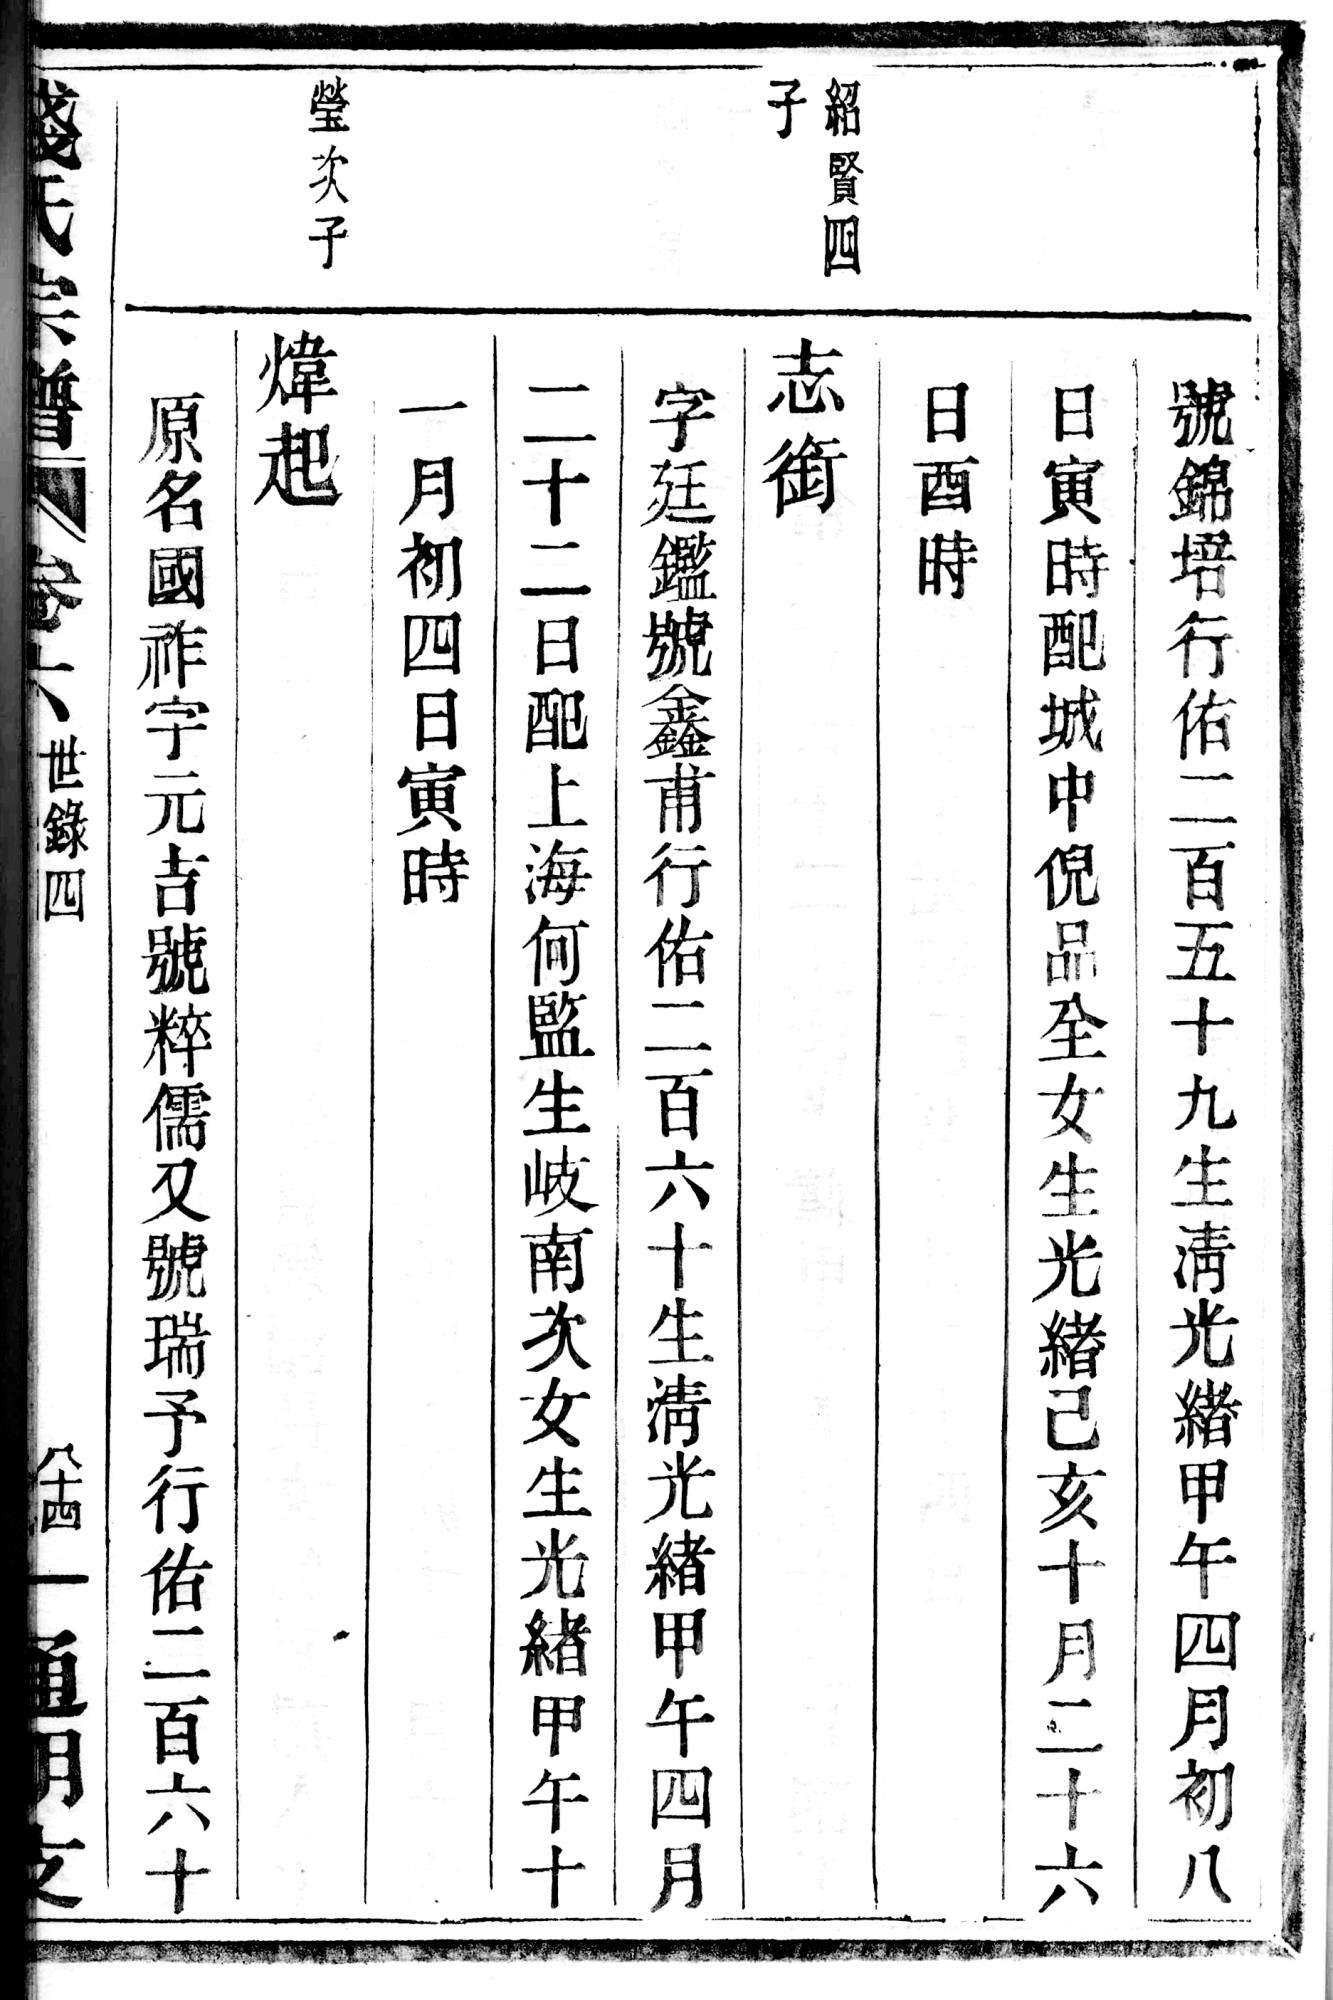 號錦培行佑二百五十九生淸光緖甲午四月初八
日寅時配城中倪品全女生光緖己亥十月二十六
日酉時
紹賢四
子
志銜
字廷鑑號鑫甫行佑二百六十生淸光緖甲午四月
二十二日配上海何監生岐南次女生光緖甲午十
一月初四日寅時
瑩次子
煒起
原名國祚字元吉號粹儒又號瑞予行佑二百六十
錢氏宗譜 卷六 世錄四 八十四 通明支